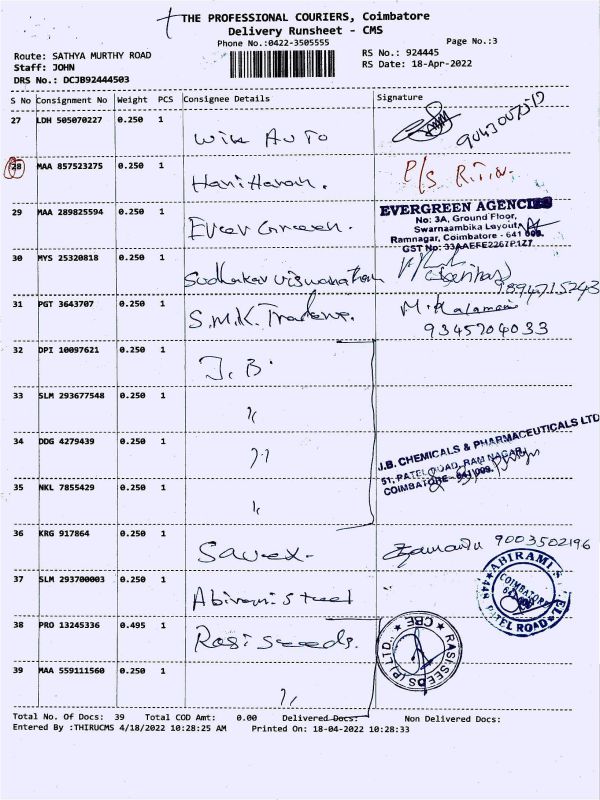 THE PROFESSIONAL COURIERS, Coimbatore
Delivery Runsheet - CMS
Phone No.:0422-3505555
Page No.:3
Route: SATHYA MURTHY ROAD
RS No.: 924445
Staff: JOHN
RS Date: 18-Apr-2022
DRS No.: DCJB92444503
S No Consignment No Weight PCS Consignee Details Signature
27 LDH 505070227 0.250 1
Win Auto
28 MAA 857523275 0.250 1 P/S R.T.N.
Hariharan.
29 MAA 289825594 0.250 1
Ever Green.
EVERGREEN AGENCIES
No: 3A, Ground Floor,
Swarnaambika Layout,
Ramnagar, Coimbatore - 641 009.
GST No: 33AAEFE2267P1Z7
30 MYS 25320818 0.250 1
Sudhakar Viswanathan
31 PGT 3643707 0.250 1
S.M.K. Traders.
9345704033
32 DPI 10097621 0.250 1
J.B.
33 SLM 293677548 0.250 1
"
34 DDG 4279439 0.250 1
"
J.B. CHEMICALS & PHARMACEUTICALS LTD
51, PATEL ROAD, RAM NAGAR,
COIMBATORE - 641 009.
35 NKL 7855429 0.250 1
"
36 KRG 917864 0.250 1
Savex.
9003502196
37 SLM 293700003 0.250 1
Abirami Steel
ABIRAMI STEEL
COIMBATORE
PATEL ROAD
38 PRO 13245336 0.495 1
Rasi Seeds.
RASI SEEDS (P) LTD.
CBE
39 MAA 559111560 0.250 1
"
Total No. Of Docs: 39 Total COD Amt: 0.00 Delivered Docs: Non Delivered Docs:
Entered By :THIRUCMS 4/18/2022 10:28:25 AM Printed On: 18-04-2022 10:28:33